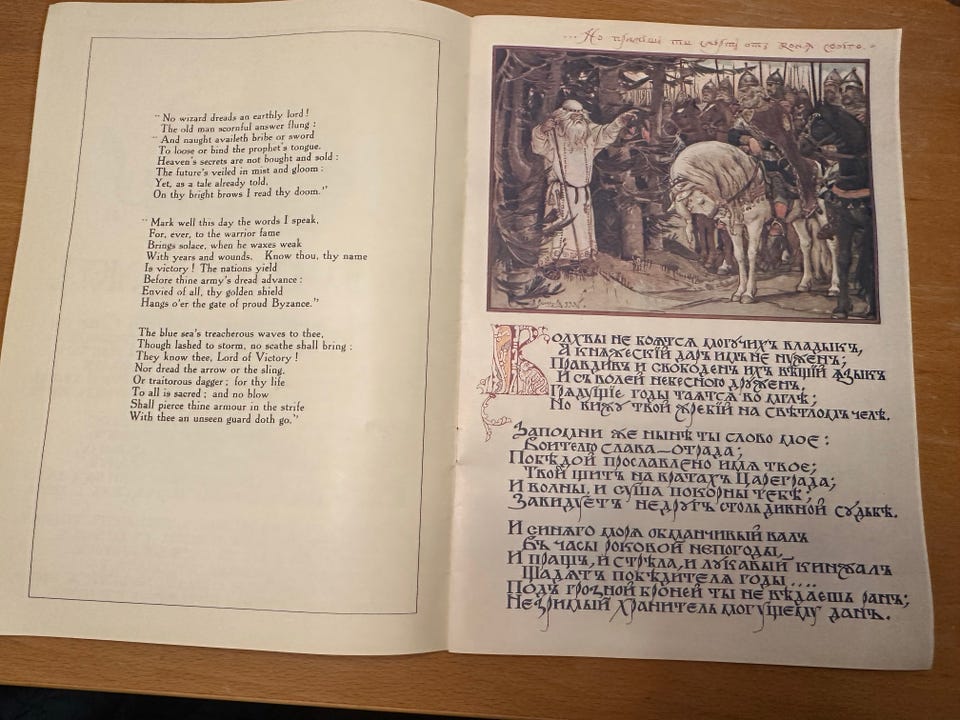 " No wizard dreads an earthly lord !
The old man scornful answer flung :
" And naught availeth bribe or sword
To loose or bind the prophet's tongue.
Heaven's secrets are not bought and sold :
The future's veiled in mist and gloom :
Yet, as a tale already told,
On thy bright brows I read thy doom."
" Mark well this day the words I speak,
For, ever, to the warrior fame
Brings solace, when he waxes weak
With years and wounds. Know thou, thy name
Is victory ! The nations yield
Before thine army's dread advance :
Envied of all, thy golden shield
Hangs o'er the gate of proud Byzance."
The blue sea's treacherous waves to thee,
Though lashed to storm, no scathe shall bring :
They know thee, Lord of Victory !
Nor dread the arrow or the sling,
Or traitorous dagger ; for thy life
To all is sacred ; and no blow
Shall pierce thine armour in the strife
With thee an unseen guard doth go."
...Но ты смерть отъ коня своего.
Волхвы не боятся могучихъ владыкъ,
А княжескій даръ имъ не нуженъ;
Правдивъ и свободенъ ихъ вѣщій языкъ
И съ волей небесною друженъ.
Грядущіе годы таятся во мглѣ;
Но вижу твой жребій на свѣтломъ челѣ.
Запомни же нынѣ ты слово мое:
Воителю слава—отрада;
Побѣдой прославлено имя твое;
Твой щитъ на вратахъ Цареграда;
И волны, и суша покорны тебѣ;
Завидуетъ недругъ столь дивной судьбѣ.
И синяго моря обманчивый валъ
Въ часы роковой непогоды,
И пращъ, и стрѣла, и лукавый кинжалъ
Щадятъ побѣдителя годы....
Подъ грозной броней ты не вѣдаешь ранъ;
Незримый хранитель могущему данъ.